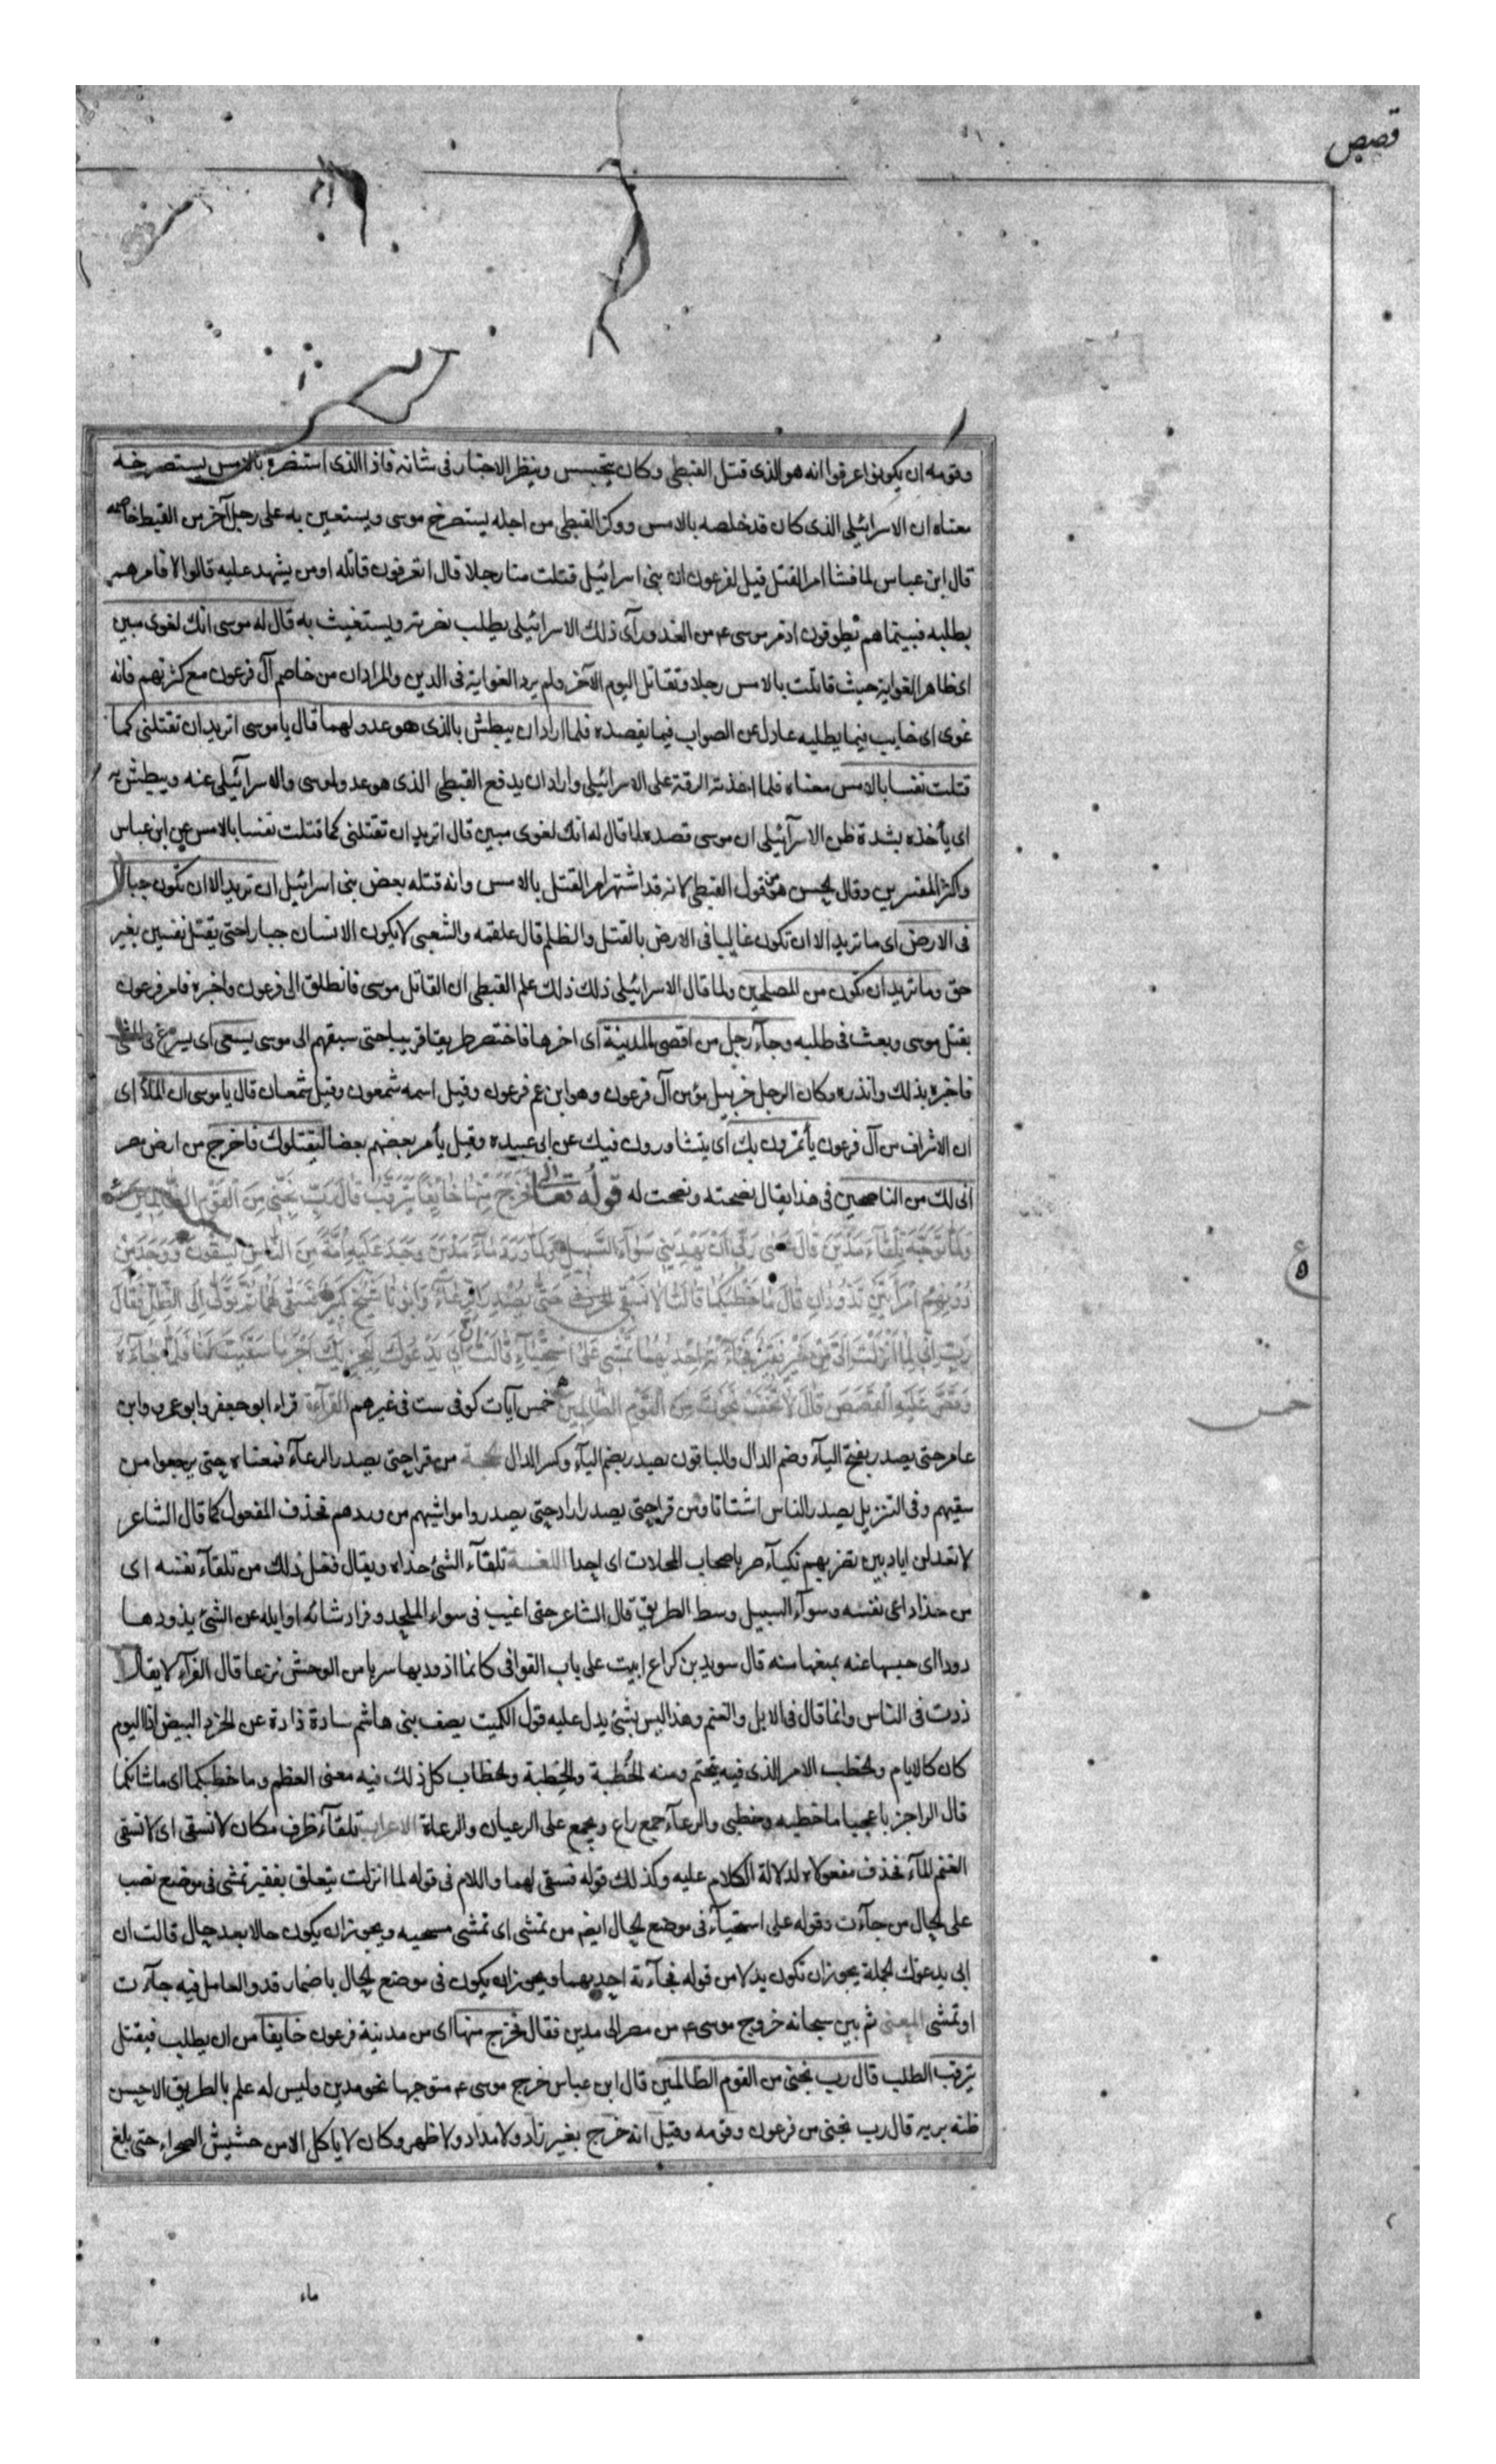 قصص
وقومه ان يكونوا عرفوا انه هو الذى قتل القبطى وكان يتجسس وينظر الاخبار فى شانه فاذا الذى استنصره بالامس يستصرخه
معناه ان الاسرائيلى الذى كان قد خلصه بالامس ووكز القبطى من اجله يستصرخ موسى ويستعين به على رجل آخر من القبط خاصمه
قال ابن عباس لما فشا امر القتل قيل لفرعون ان بنى اسرائيل قتلت منا رجلا قال اتعرفون قاتله ومن يشهد عليه قالوا لا فامرهم
بطلبه فبينما هم يطوفون اذ مر موسى ع من الغد ورآى ذلك الاسرائيلى يطلب نصرته ويستغيث به قال له موسى انك لغوى مبين
اى ظاهر الغواية حيث قاتلت بالامس رجلا وتقاتل اليوم الآخر ولم يرد الغواية فى الدين والمراد ان من خاصم آل فرعون مع كثرتهم فانه
غوى اى خايب فيما يطلبه عادل عن الصواب فيما يقصده فلما اراد ان يبطش بالذى هو عدو لهما قال يا موسى اتريد ان تقتلنى كما
قتلت نفسا بالامس معناه فلما اخذته الرقة على الاسرائيلى واراد ان يدفع القبطى الذى هو عدو لموسى والاسرآئيلى عنه ويبطش به
اى يأخذه بشدة ظن الاسرآئيلى ان موسى قصده لما قال له انك لغوى مبين قال اتريد ان تقتلنى كما قتلت نفسا بالامس عن ابن عباس
واكثر المفسرين وقال الحسن هو من قول القبطى لانه قد اشتهر امر القتل بالامس وانه قتله بعض بنى اسرائيل ان تريد الا ان تكون جبارا
فى الارض اى ما تريد الا ان تكون غالبا فى الارض بالقتل والظلم قال علقمه والشعبى لا يكون الانسان جبارا حتى يقتل نفسين بغير
حق وما تريد ان تكون من المصلحين ولما قال الاسرائيلى ذلك علم القبطى ان القاتل موسى فانطلق الى فرعون واخبره فامر فرعون
بقتل موسى وبعث فى طلبه وجآء رجل من اقصى المدينة اى اخرها فاختصر طريقا قريبا حتى سبقهم الى موسى يسعى اى يسرع فى
فاخبره بذلك وانذره وكان الرجل خربيل مؤمن آل فرعون وهو ابن عم فرعون وقيل اسمه شمعون وقيل شمعان قال يا موسى ان الملأ اى
ان الاشراف من آل فرعون يأتمرون بك اى يتشاورون فيك عن ابى عبيده وقيل يأمر بعضهم بعضا ليقتلوك فاخرج من ارض مصر
انى لك من الناصحين فى هذا يقال نصحته ونصحت له قوله تعالى فَخَرَجَ مِنْهَا خَائِفًا يَتَرَقَّبُ قَالَ رَبِّ نَجِّنِى مِنَ الْقَوْمِ الظَّالِمِينَ
وَلَمَّا تَوَجَّهَ تِلْقَاءَ مَدْيَنَ قَالَ عَسَى رَبِّى أَنْ يَهْدِيَنِى سَوَآءَ السَّبِيلِ وَلَمَّا وَرَدَ مَاءَ مَدْيَنَ وَجَدَ عَلَيْهِ أُمَّةً مِنَ النَّاسِ يَسْقُونَ وَوَجَدَ مِنْ
دُونِهِمُ امْرَأَتَيْنِ تَذُودَانِ قَالَ مَا خَطْبُكُمَا قَالَتَا لَا نَسْقِى حَتَّى يُصْدِرَ الرِّعَآءُ وَأَبُونَا شَيْخٌ كَبِيرٌ فَسَقَى لَهُمَا ثُمَّ تَوَلَّى إِلَى الظِّلِّ فَقَالَ
رَبِّ إِنِّى لِمَا أَنْزَلْتَ إِلَىَّ مِنْ خَيْرٍ فَقِيرٌ فَجَاءَتْهُ إِحْدَيهُمَا تَمْشِى عَلَى اسْتِحْيَآءٍ قَالَتْ إِنَّ أَبِى يَدْعُوكَ لِيَجْزِيَكَ أَجْرَ مَا سَقَيْتَ لَنَا فَلَمَّا جَآءَهُ
وَقَصَّ عَلَيْهِ الْقَصَصَ قَالَ لَا تَخَفْ نَجَوْتَ مِنَ الْقَوْمِ الظَّالِمِينَ خمس آيات كوفى ست فى غيرهم القرآءة قراء ابو جعفر وابو عمرو وابن
عامر حتى يصدر بفتح اليآء وضم الدال والباقون يصدر بضم اليآء وكسر الدال الحجة من قرا حتى يصدر الرعآء فمعناه حتى يرجعوا من
سقيهم وفى التنزيل يصدر الناس اشتاتا ومن قرا حتى يصدر اراد حتى يصدروا مواشيهم من وردهم فحذف المفعول كما قال الشاعر
لا تعدلن اتاويين تضربهم نكبآء صر باصحاب المحلات اى احدا اللغة تلقآء الشئ حذاه ويقال فعل ذلك من تلقآء نفسه اى
من حذا داعى نفسه وسوآء السبيل وسط الطريق قال الشاعر حتى اغيب فى سواء الملحد وذاد شائه او ابله عن الشئ يذودها
ذودا اى حبسها عنه بمنعها منه قال سويد بن كراع ابيت على باب القوافى كانما اذود بها سربا من الوحش نزعا قال الفرآء لا يقال
ذدت فى الناس وانما قال فى الابل والغنم وهذا ليس بشئ يدل عليه قول الكميت يصف بنى هاشم سادة ذادة عن الخرد البيض اذا اليوم
كان كالايام والخطب الامر الذى فيه يختم ومنه الخُطبة والخِطبة والخطاب كل ذلك فيه معنى العظم وما خطبكما اى ما شانكما
قال الراجز يا عجبا ما خطبه وخطبى والرعآء جمع راع ويجمع على الرعيان والرعاة الاعراب تلقآء ظرف مكان لا نسقى اى لا نسقى
الغنم المآء فحذف مفعولاه لدلالة الكلام عليه وكذلك قوله فسقى لهما واللام فى قوله لما انزلت يتعلق بفقير تمشى فى موضع نصب
على الحال من جآءت وقوله على استحيآء فى موضع الحال ايضا من تمشى اى تمشى مستحييه ويجوز ان يكون حالا بعد حال قالت ان
ابى يدعوك الجملة يجوز ان تكون بدلا من قوله فجآءته احديهما ويجوز ان يكون فى موضع الحال باضمار قد والعامل فيه جآءت
او تمشى المعنى ثم بين سبحانه خروج موسى ع من مصر الى مدين فقال فخرج منها اى من مدينة فرعون خايفا من ان يطلب فيقتل
يترقب الطلب قال رب نجنى من القوم الظالمين قال ابن عباس خرج موسى ع متوجها نحو مدين وليس له علم بالطريق الا حسن
ظنه بربه قال رب نجنى من فرعون وقومه وقيل انه خرج بغير زاد ولا مداد ولا ظهر وكان لا ياكل الا من حشيش الصحراء حتى بلغ
ماء